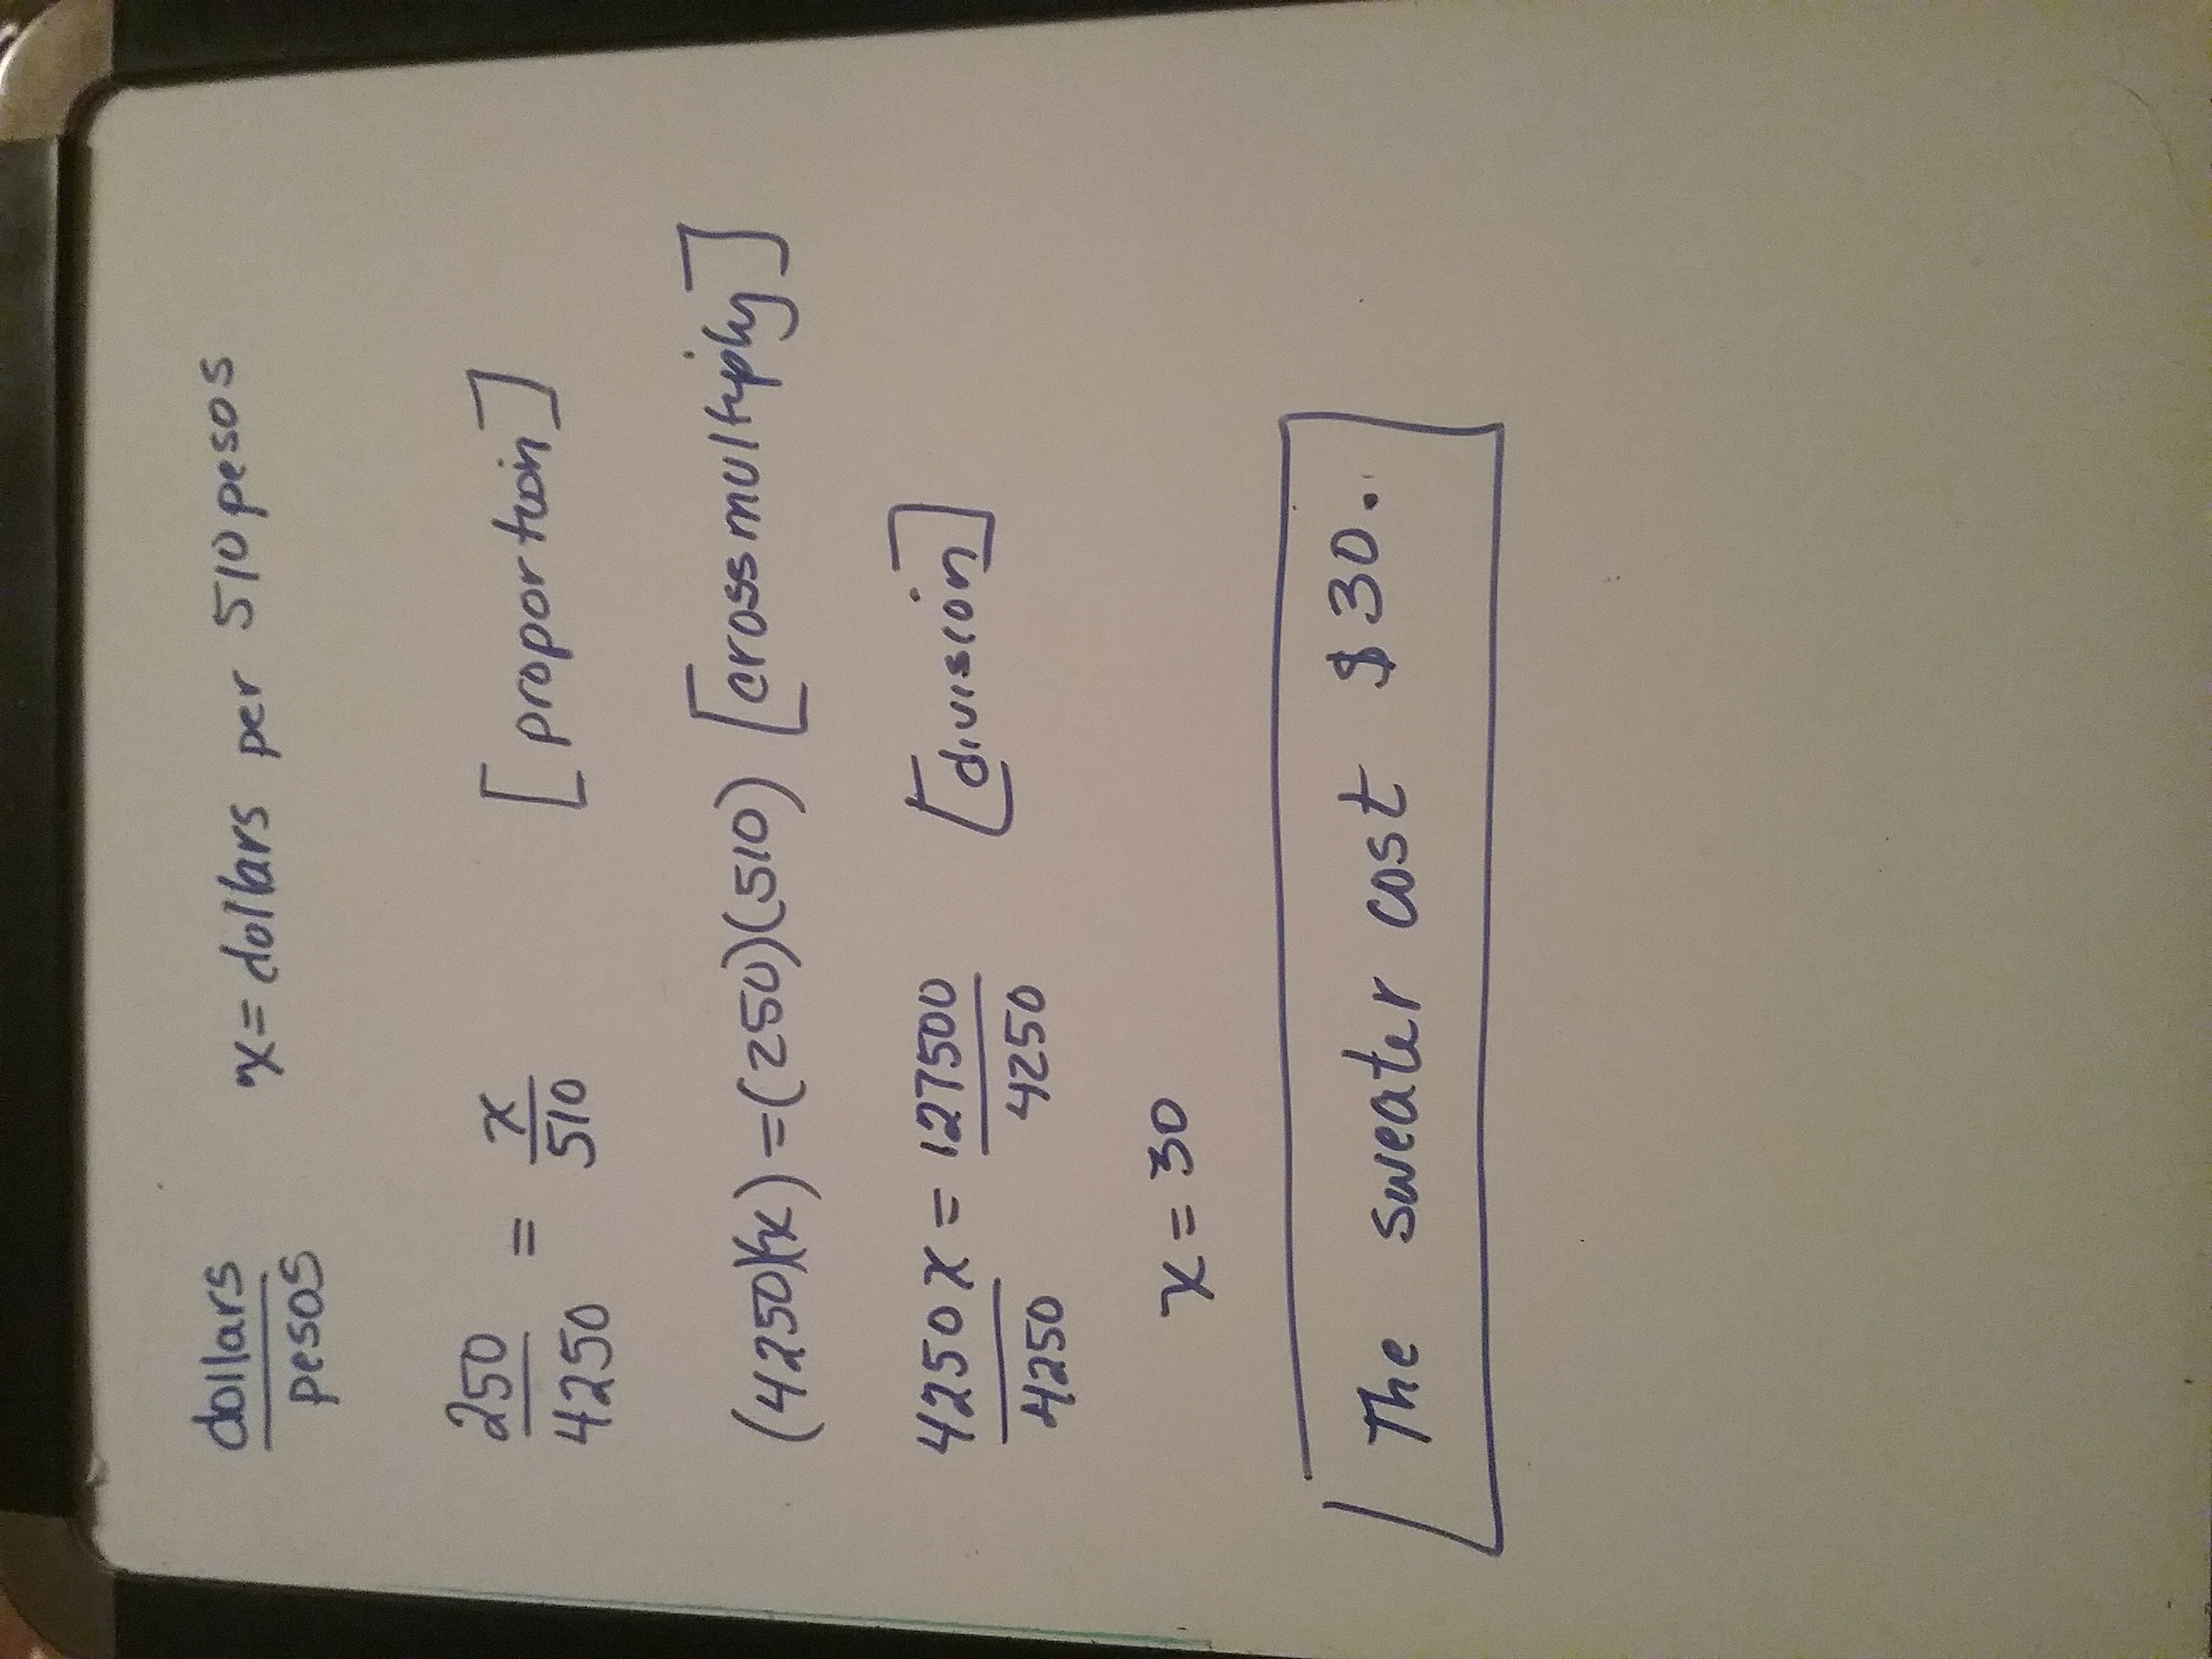 dollars x = dollars per 510 pesos
pesos
250/4250 = x/510 [proportion]
(4250)(x) = (250)(510) [cross multiply]
4250x/4250 = 127500/4250 [division]
x = 30
The sweater cost $30.